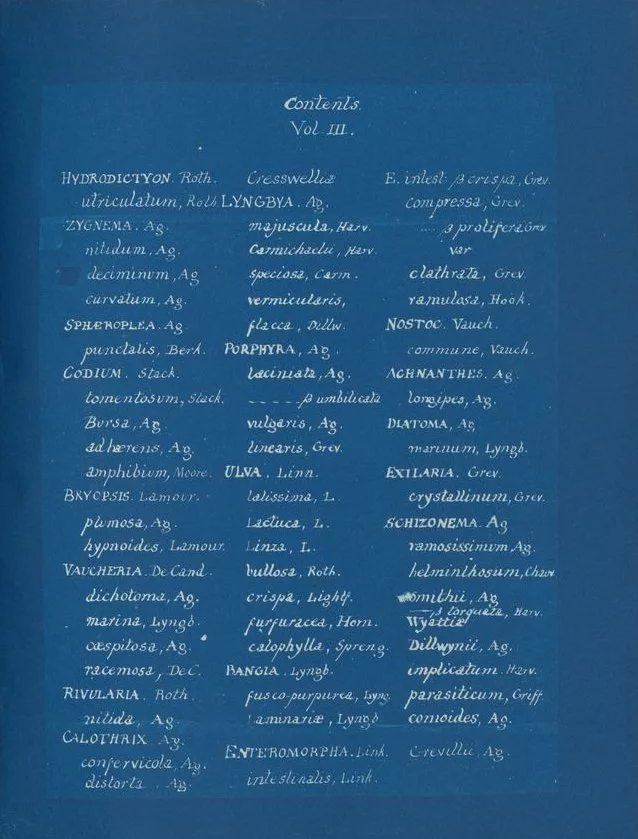 Contents.
Vol. III.
HYDRODICTYON. Roth.
utriculatum, Roth.
ZYGNEMA. Ag.
nitidum, Ag.
deciminum, Ag
curvatum, Ag.
SPHÆROPLEA. Ag
punctalis, Berk.
CODIUM. Stack.
tomentosum, Stack.
Bursa, Ag.
adhærens, Ag.
amphibium, Moore.
BRYOPSIS. Lamour.
plumosa, Ag.
hypnoides, Lamour.
VAUCHERIA. De Cand.
dichotoma, Ag.
marina, Lyngb.
cæspitosa, Ag.
racemosa, De C.
RIVULARIA. Roth.
nitida, Ag.
CALOTHRIX. Ag.
confervicola, Ag.
distorta. Ag.
Cresswelliæ
LYNGBYA. Ag.
majuscula, Harv.
Carmichaelii, Harv.
speciosa, Carm.
vermicularis,
flacca, Dillw.
PORPHYRA, Ag.
laciniata, Ag.
- - - - - β umbilicata
vulgaris, Ag.
linearis, Grev.
ULVA. Linn.
latissima, L.
Lactuca, L.
Linza, L.
bullosa, Roth.
crispa, Lightf.
furfuracea, Horn.
calophylla, Spreng.
BANGIA. Lyngb.
fusco-purpurea, Lyng.
Laminariæ, Lyngb
ENTEROMORPHA. Link.
intestinalis, Link.
E. intest: β crispa, Grev.
compressa, Grev.
... β prolifera Grev
var
clathrata, Grev.
ramulosa, Hook.
NOSTOC. Vauch.
commune, Vauch.
ACHNANTHES. Ag.
longipes, Ag.
DIATOMA, Ag
marinum, Lyngb.
EXILARIA. Grev.
crystallinum, Grev.
SCHIZONEMA. Ag
ramosissimum Ag.
helminthosum, Chauv
Smithii, Ag
— β torquata, Harv.
Wyattiæ
Dillwynii, Ag.
implicatum. Harv.
parasiticum, Griff.
comoides, Ag.
Grevillii, Ag.